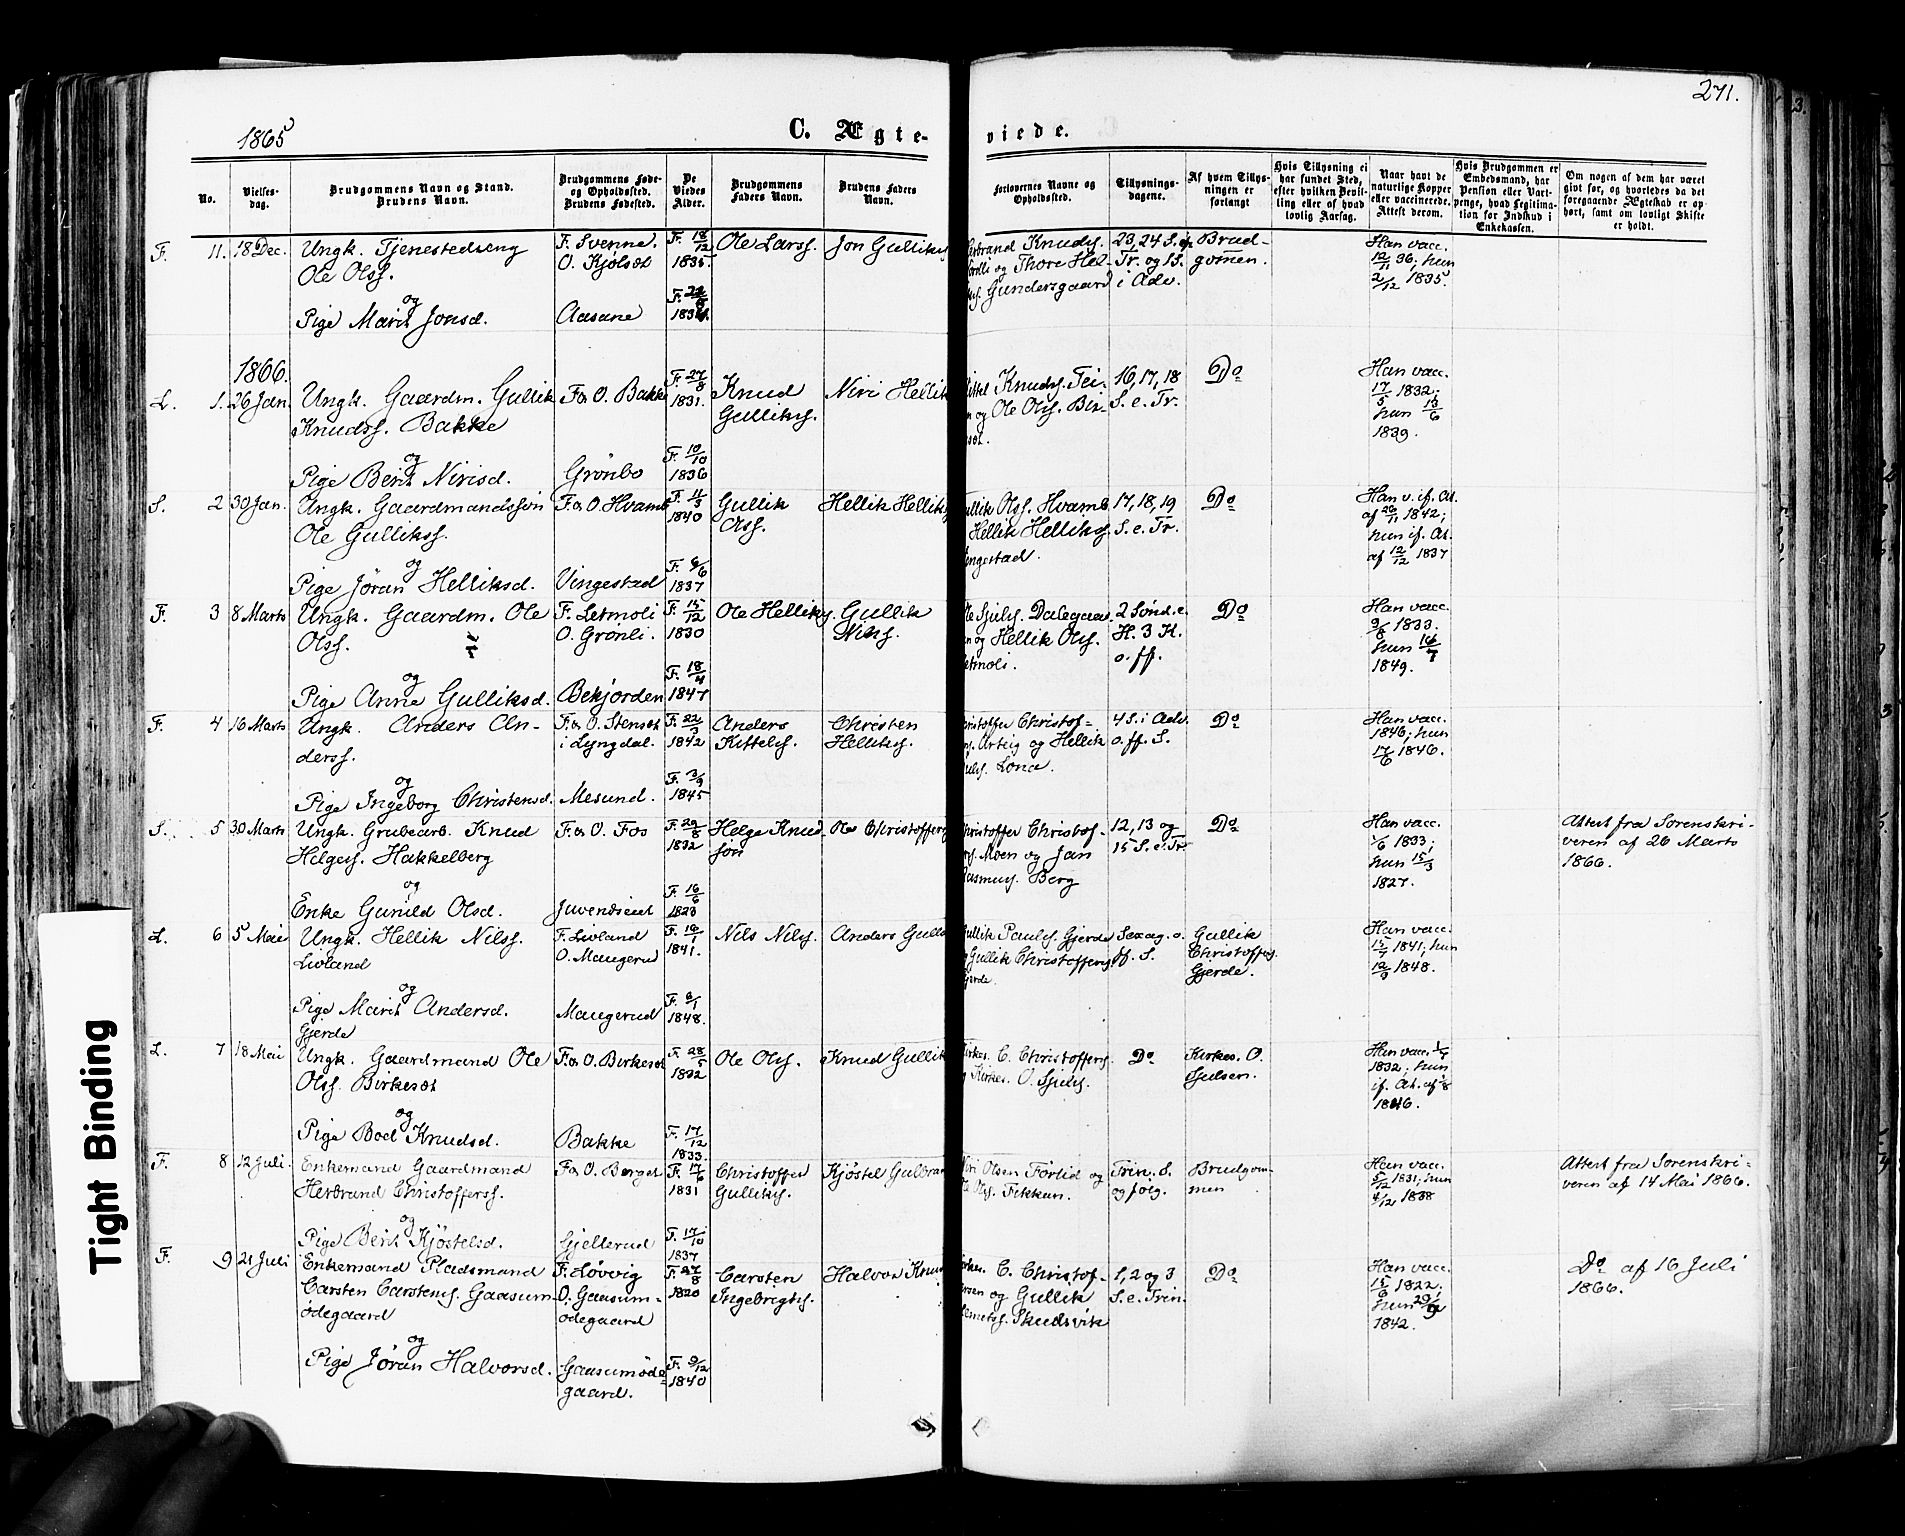 271.
1865
C. Ægte-
viede.
No.
Vielses-
dag.
Brudgommens Navn og Stand.
Brudens Navn.
Brudgommens Føde-
og Opholdssted.
Brudens Fødested.
De
Viedes
Alder.
Brudgommens
Faders Navn.
Brudens Faders
Navn.
Forlovernes Navne og
Opholdssted.
Tillysnings-
dagene.
Af hvem Tillys-
ningen er
forlangt
Hvis Tillysning ei
har fundet Sted,
efter hvilken Bevil-
ling eller af hvad
lovlig Aarsag.
Naar havt de
naturlige Kopper
eller vaccinerede.
Attest derom.
Hvis Brudgommen er
Embedsmand, har
Pension eller Vart-
penge, hvad Legitima-
tion for Indskud i
Enkekassen.
Om nogen af dem har været
gift før, og hvorledes da det
foregaaende Ægteskab er op-
hørt, samt om lovligt Skifte
er holdt.
F. 11. 18 Dec.
Ungk. Tjenestedreng
Ole Olss.
og
Pige Marit Jonsd.
F. Svenne.
O. Kjölset
Aasane
F. 18/12
1835.
Ole Larss.
Jon Gulliks
Knuds.
og Thore Hel-
Gundersgaard
23, 24 S. e.
Tr. og 1 S.
i Adv.
Brud-
gomen.
Han vacc.
12/11 36; hun
2/12 1835.
1866.
L. 1. 26 Jan.
Ungk. Gaardm. Gullik
Knudss. Bakke
og
Pige Berit Nirisd.
F. & O. Bakke
Grönbo
F. 27/8
1831.
F. 10/10
1836
Knud
Gulliks.
Niri Hellik
Knuds. Fei-
og Ole Ols. Bir-
16, 17, 18
S. e. Tr.
Do
Han vacc.
17/5 1832;
hun 13/6
1839.
S. 2 30 Jan.
Ungk. Gaardmandssøn
Ole Gullikss.
og
Pige Jöran Helliksd.
F. & O. Hvamb
Vingestad
F. 11/3
1840
F. 9/6
1837
Gullik
Olss.
Hellik Helliks
Olss. Hvamb
Hellik Helliks.
ngestad.
17, 18, 19
S. e. Tr.
Do
Han v. if. At.
af 26/11 1842;
hun if. At.
af 12/12 1837
F. 3 8 Marts
Ungk. Gaardm. Ole
Olss.
og
Pige Anne Gulliksd.
F. Letmoli
O. Grönli.
Bekjorden
F. 15/12
1830
F. 18/4
1847
Ole Helliks.
Gullik
Nils.
Sjuls. Dalegaar
og Hellik Ols.
etmoli.
2 Sönd. e.
H. 3 K.
o. ff.
Do
Han vacc.
9/8 1833.
hun 16/7
1849.
F. 4 16 Marts
Ungk. Anders An-
derss.
og
Pige Ingeborg Christensd.
F. & O. Stenset
i Lyngdal.
Mesund.
F. 22/3
1842
F. 3/9
1845
Anders
Kittels.
Christen
Helliks.
Christof-
og Hellik
Lona.
4 S. i Adv.
o. ff. S.
Do
Han vacc.
1846; hun
17/6 1846.
S. 5 30 Marts
Ungk. Grubearb. Knud
Helges. Hakkelberg
og
Enke Gunild Olsd.
F. & O. Fos
F. 29/8
1832
F. 16/6
1823
Helge Knud-
søn
Ole Christoffers
Christof-
Moen og Jan
Rasmuss. Berg
12, 13 og
15 S. e. Tr.
Do
Han vacc.
1/6 1833;
hun 15/3
1827.
Attest fra Sorenskri-
veren af 26 Marts
1866.
L. 6 5 Mai
Ungk. Hellik Nilss.
Livland
og
Pige Marit Andersd.
Gjerde
F. Livland
O. Maugerud
Maugerud
1841.
F. 6/1
1848.
Nils Nils.
Anders Gull
Pauls. Gjerde
Gullik Christoffers.
jerde.
Sexag. o.
ff. S.
Gullik
Christoffers.
Gjerde.
Han vacc.
15/7 1841; hun
12/9 1848.
L. 7 18 Mai
Ungk. Gaardmand Ole
Olss. Birkeset
og
Pige Bod Knudsd.
F. & O. Birkeset
Bakke
F. 28/5
1832
F. 17/12
1833.
Ole Ols.
Knud Gullik
C. Christoffers.
Kirkes. O. Sjuls.
Do
Kirkes. O.
Sjulsen.
Han vacc. 1/7
1832; hun
if. At. af
1846.
F. 8 12 Juli.
Enkemand Gaardmand
Herbrand Christofferss.
og
Pige Berit Kjöstelsd.
F. & O. Berget
Gjellerud
F. 17/6
1831
F. 17/10
1837
Christoffer
Gulliks.
Kjöstel Gulbran
Olsen Förlid og
Ols. Fikkan.
Trin. S.
og følg.
Brudgom-
men
Han vacc.
5/12 1831; hun
4/12 1838
Attest fra Sorenskri-
veren af 14 Mai 1866.
F. 9 21 Juli
Enkemand Pladsmand
Carsten Carstens. Gaasum-
ödegaard
og
Pige Jöran Halvorsd.
F. Lövvig
O. Gaasum-
ödegaard
Gaasumöde-
gaard.
F. 27/8
1820
F. 9/12
1840
Carsten
Ingebrigts.
Halvor Knu
C. Christof-
ersen og Gullik
Skudsvik
1, 2 og 3
S. e. Trin.
Do
Han vacc.
15/6 1822,
hun 29/9
1842.
Do af 16 Juli
1866.
Tight Binding